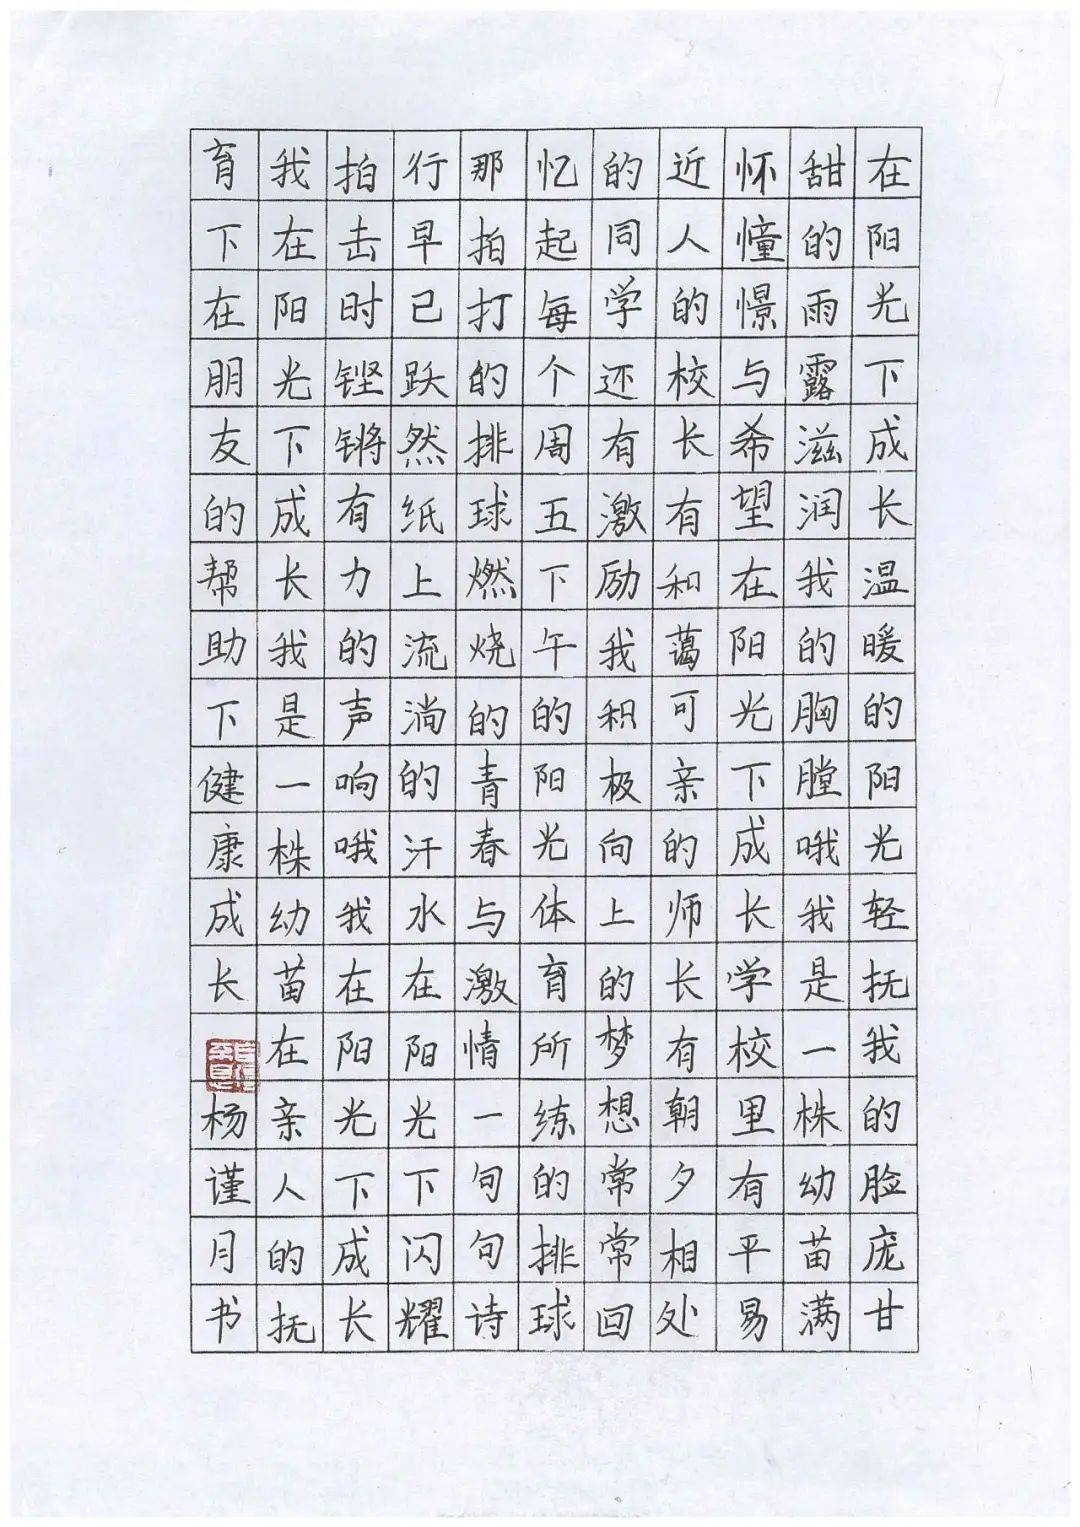 在阳光下成长温暖的阳光轻抚我的脸庞甘
甜的雨露滋润我的胸膛哦我是一株幼苗满
怀憧憬与希望在阳光下成长学校里有平易
近人的校长有和蔼可亲的师长有朝夕相处
的同学还有激励我积极向上的梦想常常回
忆起每个周五下午的阳光体育所练的排球
那拍打的排球燃烧的青春与激情一句句诗
行早已跃然纸上流淌的汗水在阳光下闪耀
拍击时铿锵有力的声响哦我在阳光下成长
我在阳光下成长我是一株幼苗在亲人的抚
育下在朋友的帮助下健康成长
杨谨月书